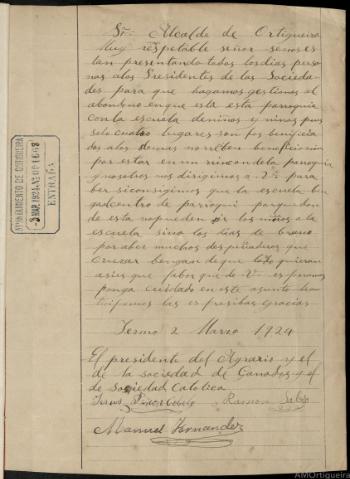 Sr. Alcalde de Ortigueira
Muy respetable señor senos es
tan presentando todos los dias perso
nas alos Presidentes de las Socieda-
des para que hagamos gestiones al
abandono enque está esta parroquia
con la escuela deniños y niñas pues
solo cuatro lugares son los benificia
dos alos demas no reciben beneficio ningun
por estar en un rincon dela parroquia
y nosotros nos dirigimos a V. para
ber siconsigimos que la escuela benga
parael centro de parroquia porque donde
esta nopueden ir los niños ala
escuela sino los dias de berano
por aber muchos despeñaderos que
cruzar bengan de que lado quieran
asi es que fabor que de V. esperamos
ponga cuidado en este asunto han
ticipamos las espresibas gracias
Yermo 2 Marzo 1924
El presidente del Agrario y el
de la sociedad de Ganados y el
de Sociedad Catolica
Jesus
Ramon
Manuel Fernandez
AYUNTAMIENTO DE ORTIGUEIRA
-3 MAR. 1924
ENTRADA
AMOrtigueira